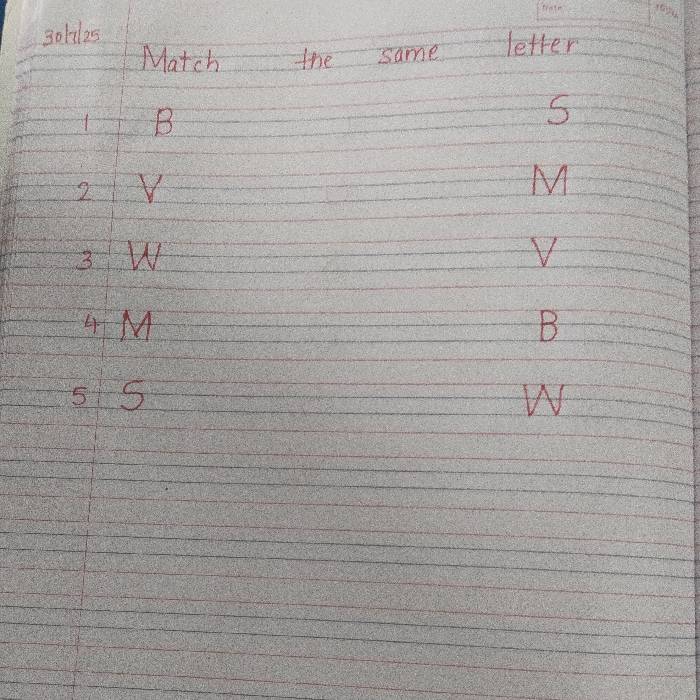 30/7/25
Match the same letter
1 B S
2 V M
3 W V
4 M B
5 S W